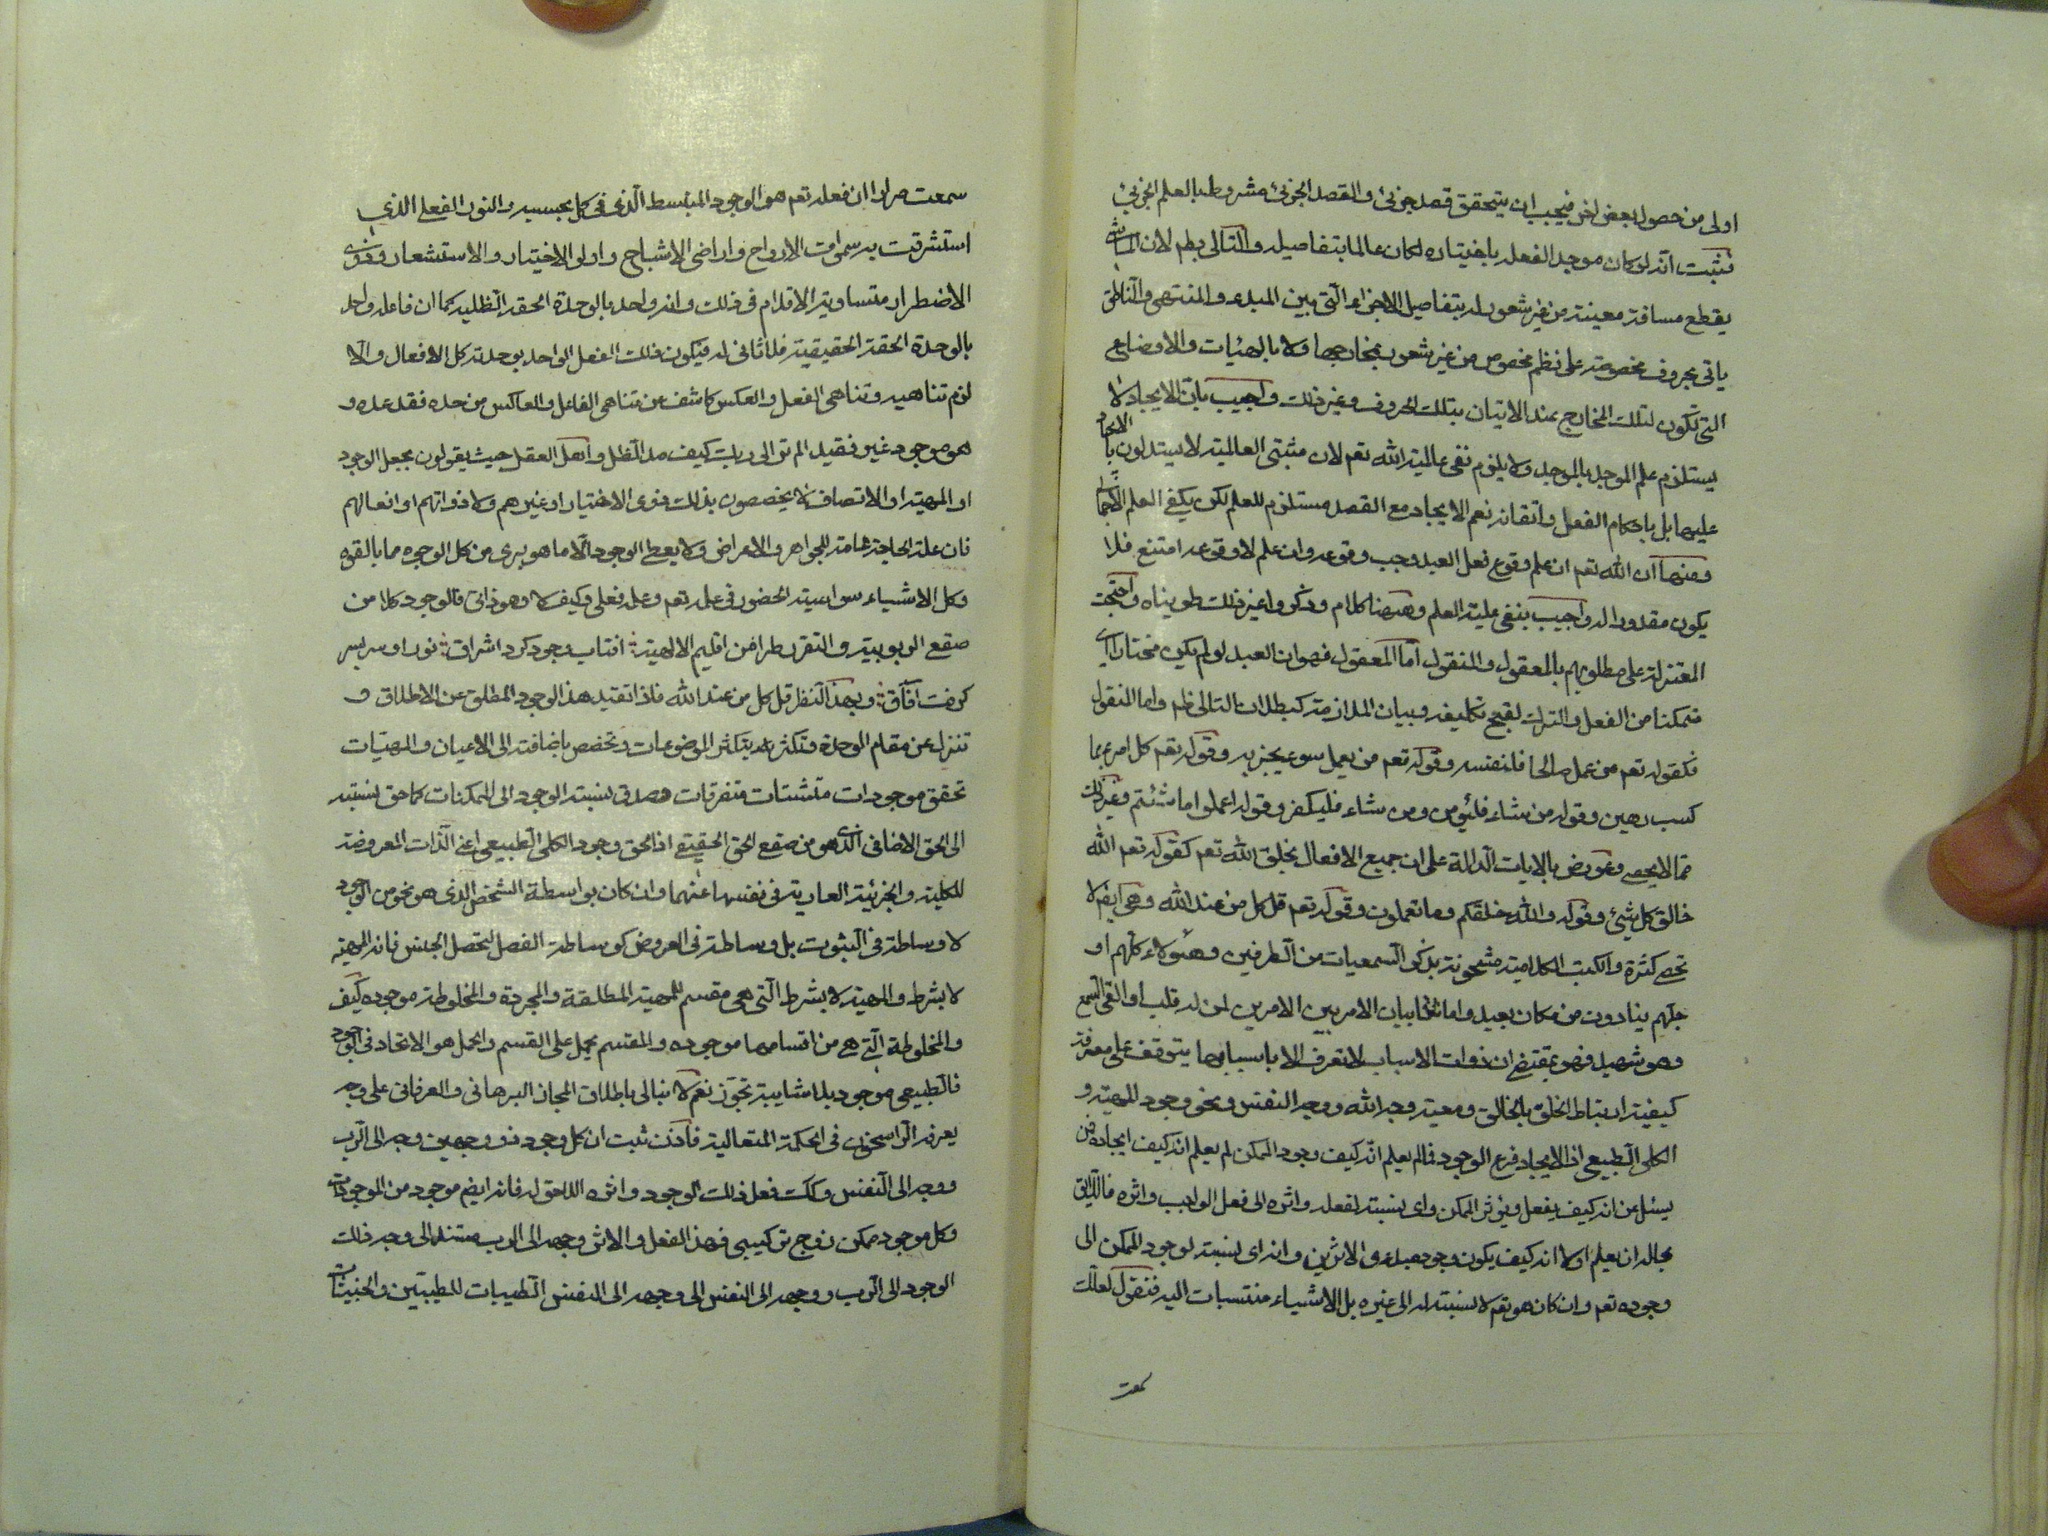 اولى من حصول بعض اخر فيجب ان يتحقق قصد جزئى والقصد الجزئى مشروط بالعلم الجزئى
فثبت انه لو كان موجد الفعل باختياره لكان عالما بتفاصيله والتالى بطم لان الماشى
يقطع مسافة معينة من غير شعور له بتفاصيل الاجزاء التى بين المبدء والمنتهى والناطق
ياتى بحروف مخصوصة على نظم مخصوص من غير شعور بمخارجها ولا بالهيئات والاوضاع
التى تكون لتلك المخارج عند الاتيان بتلك الحروف وغير ذلك واجيب بان الايجاد لا
يستلزم علم الموجد بالموجد ولا يلزم نفى عالمية الله تعم لان مثبتى العالمية لا يستدلون بالايجاد
عليها بل باحكام الفعل واتقانه نعم الايجاد مع القصد مستلزم للعلم لكن يكفى العلم الاجمالى
ومنها ان الله تعم ان علم وقوع فعل العبد وجب وقوعه وان علم لا وقوعه امتنع فلا
يكون مقدورا له واجيب بنفى علية العلم وههنا كلام وذكروا غير ذلك طويناه واحتجت
المعتزلة على مطلوبهم بالمعقول والمنقول اما المعقول فهو ان العبد لو لم يكن مختارا اى
متمكنا من الفعل والترك لقبح تكليفه وبيان الملازمة كبطلان التالى ظم واما المنقول
فكقوله تعم من عمل صالحا فلنفسه وقوله تعم من يعمل سوء يجز به وقوله تعم كل امرء بما
كسب رهين وقوله من شاء فليؤمن ومن شاء فليكفر وقوله اعملوا ما شئتم وغير ذلك
مما لا يحصى وعورض بالايات الدالة على ان جميع الافعال بخلق الله تعم كقوله تعم الله
خالق كل شئ وقوله والله خلقكم وما تعملون وقوله تعم قل كل من عند الله وهى ايضم لا
تحصى كثرة والكتب الكلامية مشحونة بذكر السمعيات من الطرفين وهئولاء كلهم او
جلهم ينادون من مكان بعيد واما بيان الامر بين الامرين لمن له قلب او القى السمع
وهو شهيد فهو بمقتضى ان ذوات الاسباب لا تعرف الا باسبابها يتوقف على معرفة
كيفية ارتباط الخلق بالخالق ومعية وجه الله ووجه النفس ونحو وجود المهية و
الكلى الطبيعى اذ الايجاد فرع الوجود فما لم يعلم انه كيف وجود الممكن لم يعلم انه كيف ايجاده فمن
يسئل عن انه كيف يفعل ويؤثر الممكن واى نسبة لفعله واثره الى فعل الواجب واثره فاللائق
بحاله ان يعلم اولا انه كيف يكون وجود مبدء الاثرين وانه اى نسبة لوجود الممكن الى
وجوده تعم وان كان هو تعم لا نسبة له الى غيره بل الاشياء منتسبات اليه فنقول لعلك
سمعت
سمعت مرارا ان فعله تعم هو الوجود المنبسط الذى فى كل بحسبه والنور الفعلى الذى
استشرقت به سموات الارواح واراضى الاشباح واولو الاختيار والاستشعار وذوى
الاضطرار متساوية الاقدام فى ذلك وانه واحد بالوحدة الحقة الظلية كما ان فاعله واحد
بالوحدة الحقة الحقيقية فلا ثانى له فيكون ذلك الفعل الواحد بوحدته كل الافعال والا
لزم تناهيه وتناهى الفعل والعكس كاشف عن تناهى الفاعل والعاكس من حده فقد عده و
هو موجود غير فقيد الم تر الى ربك كيف مد الظل واهل العقل حيث يقولون بجعل الوجود
او المهية او الاتصاف لا يخصصون بذلك ذوى الاختيار او غيرهم ولا ذواتهم او افعالهم
فان علة الحاجة عامة للجواهر والاعراض ولا يعطى الوجود الا ما هو برى من كل الوجوه مما بالقوه
وكل الاشياء سواسية الحضور فى علمه تعم وعلمه فعلى وكيف لا وهو ذاتى فالوجود كلا من
صقع الربوبية والتقرر طرا من اقليم الالهية افتاب وجود كرد اشراق نور او سربسر
كرفت آفاق وبهذا النظر قل كل من عند الله فاذا تقيد هذا الوجود المطلق عن الاطلاق و
تنزل عن مقام الوحدة وتكثر بتكثر الموضوعات وتخصص باضافته الى الاعيان والمهيات
تحقق موجودات متشتتات متفرقات فصدق نسبة الوجود الى الممكنات كما حق نسبته
الى الحق الاضافى الذى هو من صقع الحق الحقيقى اذ الحق وجود الكلى الطبيعى اعنى الذات المعروضة
للكلية والجزئية العارية فى نفسها عنهما وان كان بواسطة الشخص الذى هو نحو من الوجود
لا وساطة فى الثبوت بل وساطة فى العروض كوساطة الفصل لتحصل الجنس فانه المهية
لا بشرط والمهية لا بشرط التى هى مقسم للمهية المطلقة والمجردة والمخلوطة موجوده كيف
والمخلوطة التى هى من اقسامها موجوده والمقسم يحمل على القسم والحمل هو الاتحاد فى الوجود
فالطبيعى موجود بلا شايبة تجوز نعم لا نبالى باطلاق المجاز البرهانى والعرفانى على وجه
يعرفه الراسخون فى الحكمة المتعالية فاذن ثبت ان كل وجود ذو وجهين وجه الى الرب
ووجه الى النفس وكك فعل ذلك الوجود واثره اللاحق له فانه ايضم موجود من الموجودات
وكل موجود ممكن زوج تركيبى فهذا الفعل والاثر وجهه الى الرب مستند الى وجه ذلك
الوجود الى الرب ووجهه الى النفس الى وجهه الى النفس الطيبات للطيبين والخبيثات